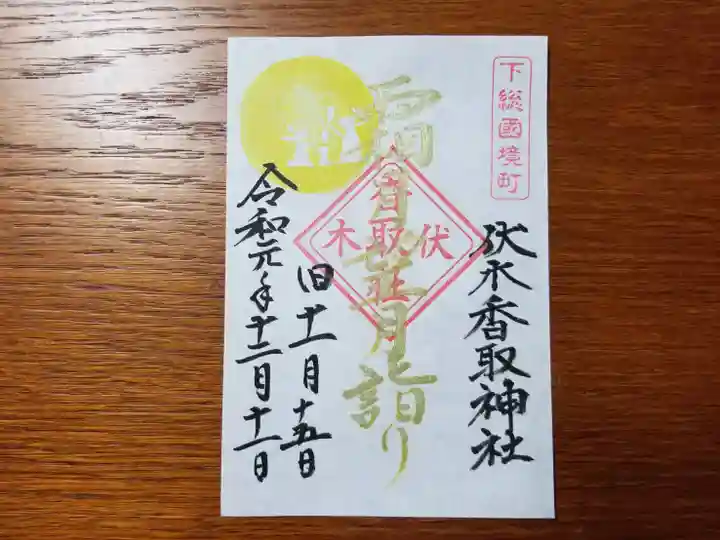 下総國境町
伏木香取神社
月詣り
香取社
伏木
旧十一月十五日
令和元年十二月十一日